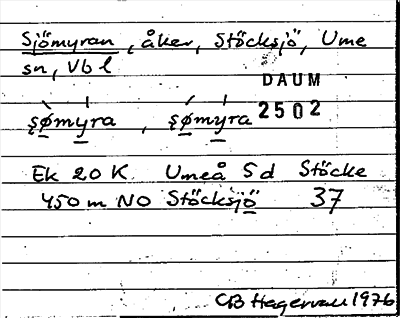 Sjömyran, åker, Stöcksjö, Ume
sn, Vb l
DAUM
2502
şø̱my̱ra, şø̱my̱ra
Ek 20 K. Umeå 5 d Stöcke
450 m NO Stöcksjö̱ 37
CB Hagervall 1976